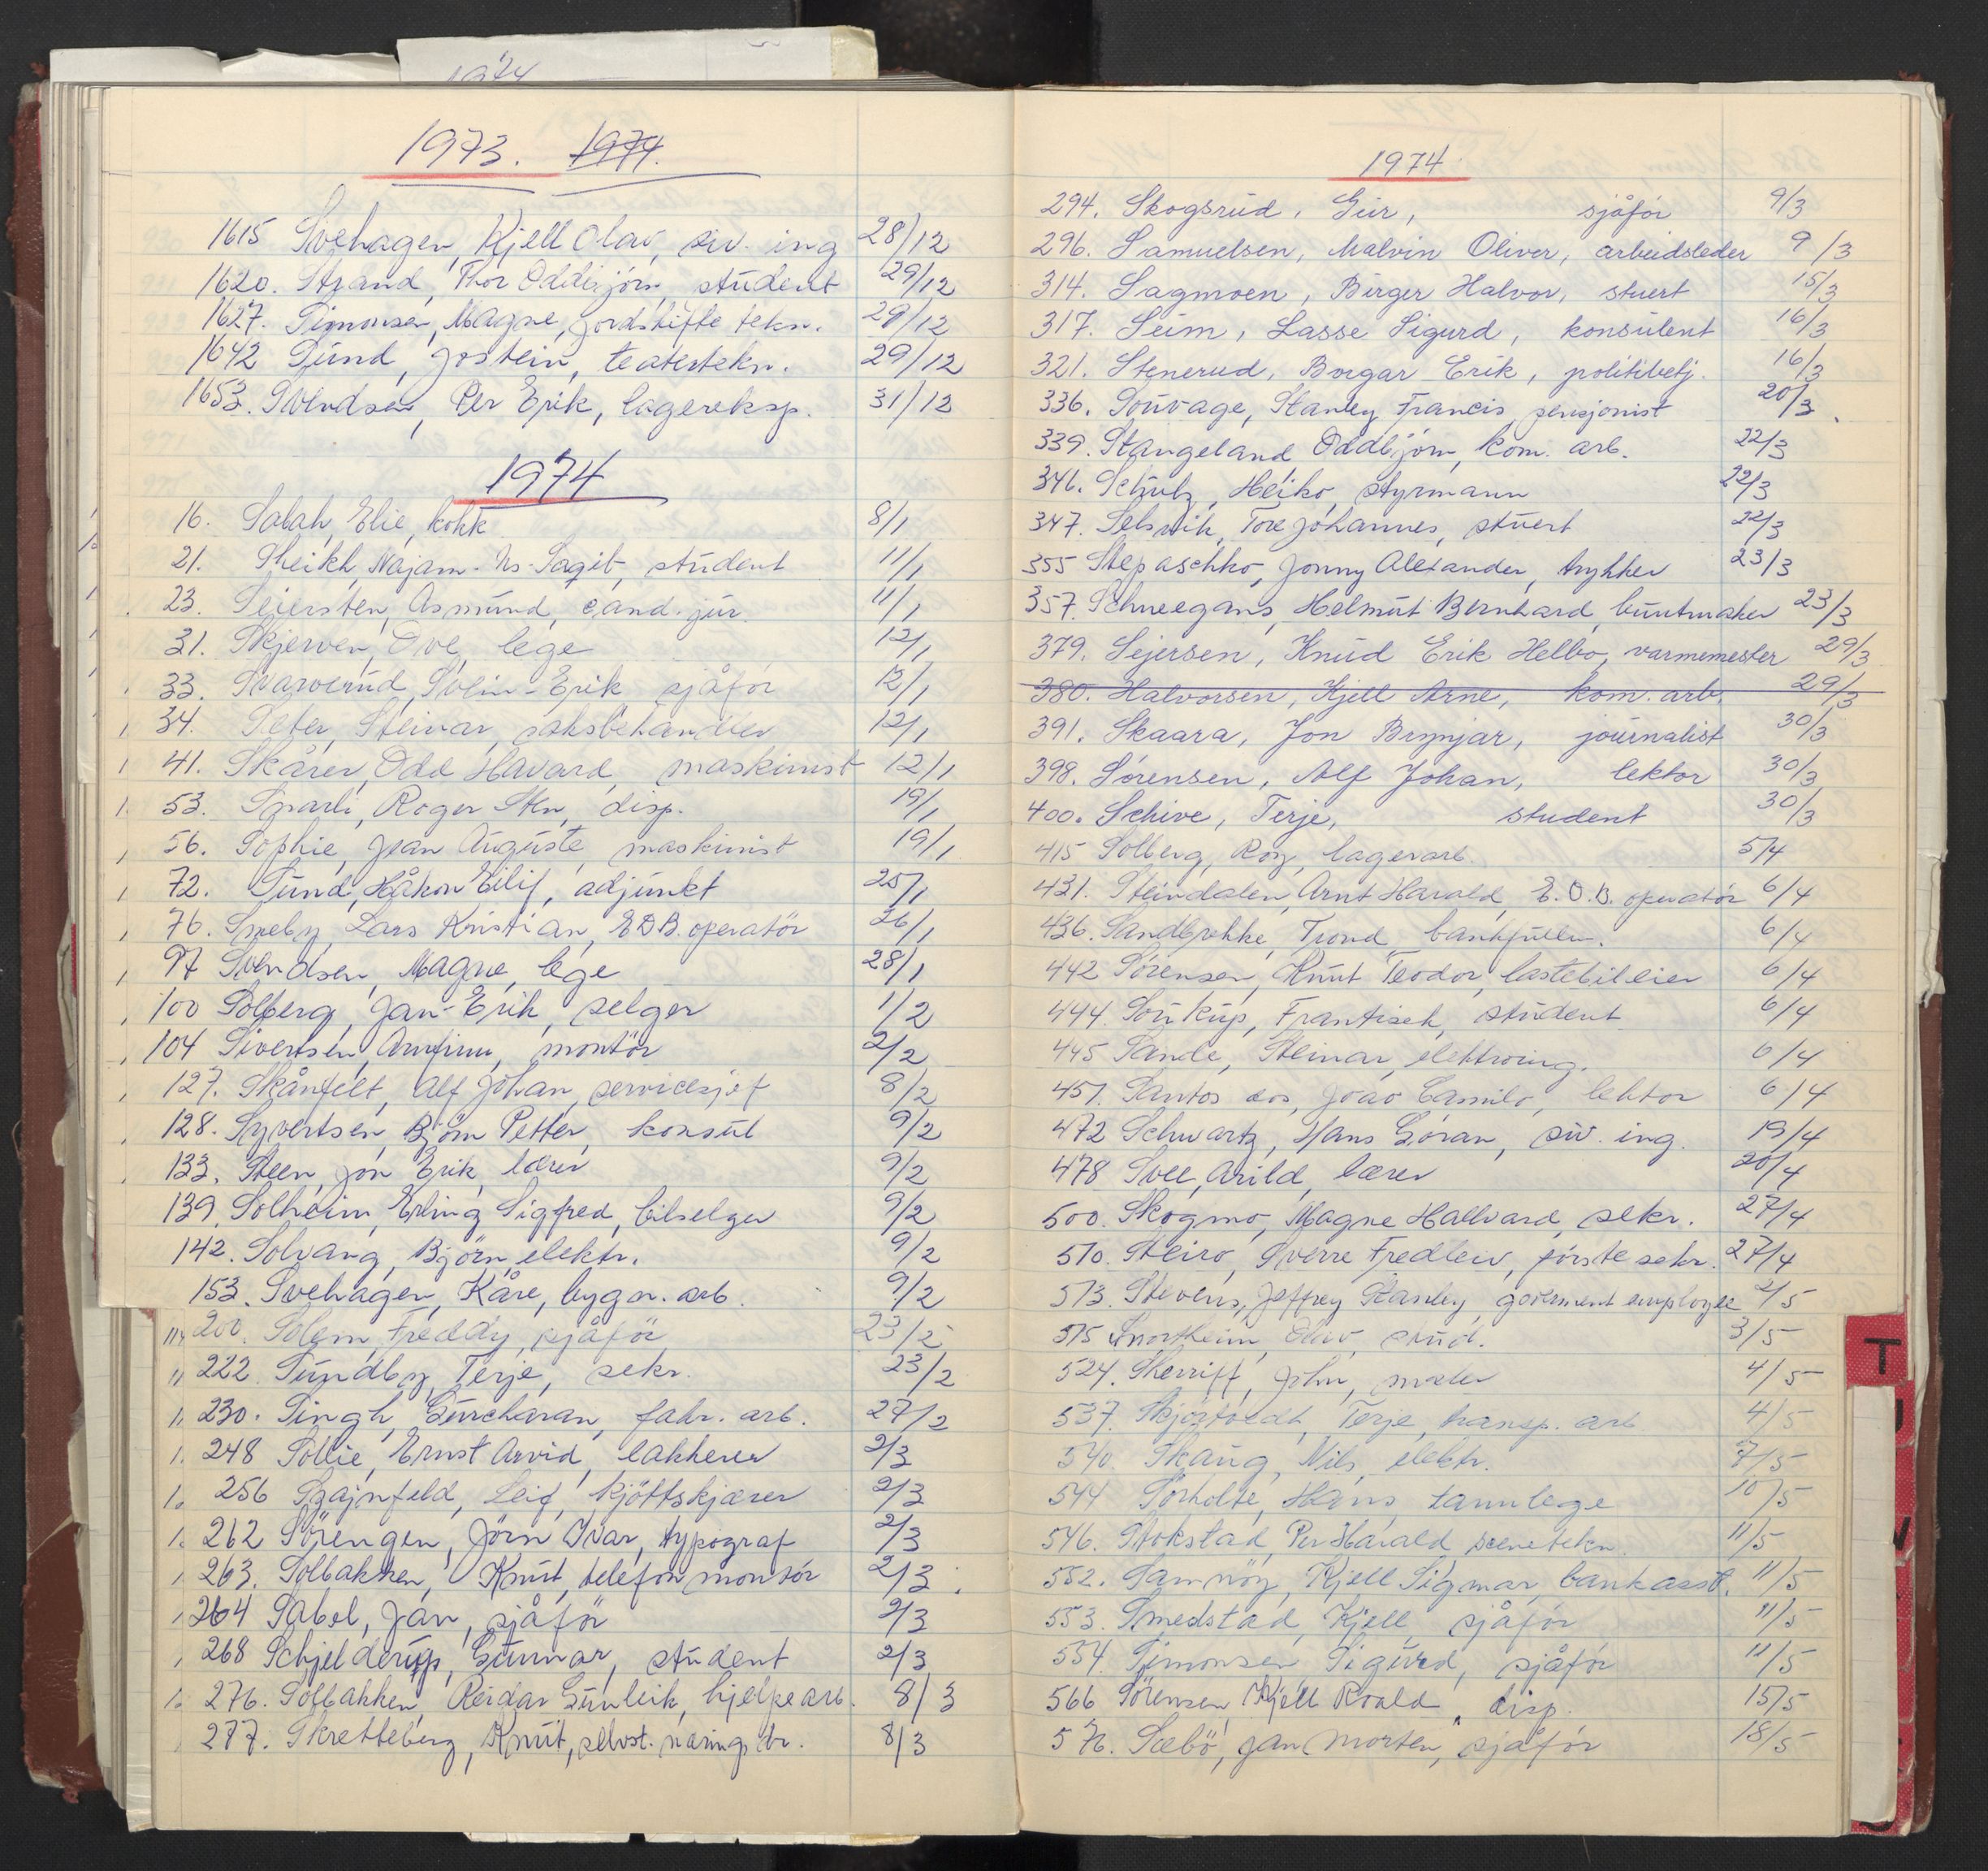 1974
1973. 1974.
1615 Svehagen, Kjell Olav, siv. ing 28/12
1620. Strand, Thor Oddbjörn, student 29/12
1627. Simonsen, Magne, jordskifte tekn. 29/12
1642 Sund, Jostein, teatertekn. 29/12
1653. Svendsen, Per Erik, lagereksp. 31/12
1974
16. Salah, Elie, kokk 8/1
21. Sheikh, Najam-Us-Saqib, student 11/1
23. Sejersten, Asmund, cand. jur. 11/1
31. Skjerven, Ove, lege 12/1
33. Svarverud, Svein-Erik sjåför 12/1
34. Seter, Steinar, saksbehandler 12/1
41. Skårer, Odd Havard, maskinist 12/1
53. Roger Sten, disp. 19/1
56. Sophie, Jean Auguste, maskinist 19/1
72. Sund, Håkon Eilif, adjunkt 25/1
76. Smeby, Lars Kristian, EDB.operatör 26/1
97 Svendsen, Magne, lege 28/1
100 Solberg, Jan-Erik, selger 1/2
104 Sivertsen, Arnfinn, montör 2/2
127. Skånfelt, Alf Johan, servicesjef 8/2
128. Syvertsen, Björn Petter, konsul 9/2
133. Steen, Jon Erik, lærer 9/2
139. Solheim, Erling Sigfred, bilselger 9/2
142. Solvang, Björn, elektr. 9/2
153. Svehagen, Kåre, bygn. arb. 9/2
200. Solem, Freddy, sjåför 23/2
222. Sundby, Terje, sekr. 23/2
230. Singh, Gurcharan, fabr. arb. 27/2
248 Sollie, Ernst Arvid, lakkerer 2/3
256 Szajnfeld, Leif, kjöttskjærer 2/3
262 Sörengen, Jörn Ivar, typograf 2/3
263. Solbakken, Knut, telefonmontör 2/3.
264 Sabel, Jan, sjåför 2/3
268 Schjelderup, Gunnar, student 2/3
276. Solbakken, Reidar Gunleik, hjelpearb. 8/3
277. Skretteberg, Knut, selvst. nærings dr. 8/3
1974
294. Skogsrud, Geir, sjåför 9/3
296. Samuelsen, Malvin Oliver, arbeidsleder 9/3
314. Sagmoen, Birger Halvor, stuert 15/3
317. Seim, Lasse Sigurd, konsulent 16/3
321. Stenerud, Borgar Erik, politibetj. 16/3
336. Souvage, Stanley Francis, pensjonist 20/3.
339. Stangeland Oddbjörn, kom. arb. 22/3
346. Schulz, Heiko, styrmann 22/3
347. Selsvik, Tore Johannes, stuert 22/3
355 Stepaschko, Jonny Alexander, trykker 23/3
357. Schneegans, Helmut Bernhard, buntmaker 23/3
379. Sejersen, Knud Erik Helbo, varmemester 29/3
380. Halvorsen, Kjell Arne, kom. arb. 29/3
391. Skaara, Jon Brynjar, journalist 30/3
398. Sørensen, Alf Johan, lektor 30/3
400. Schive, Terje, student 30/3
415 Solberg, Roy, lagerarb. 5/4
431. Steindalen, Arnt Harald, E.D.B. operatör 6/4
436. Sandbrekke, Trond, bankfullm. 6/4
442 Sörensen, Knut Teodor, lastebileier 6/4
444. Soukup, Frantisek, student 6/4
445 Sande, Steinar, elektroing. 6/4
451. Santos dos, Joao Camilo, lektor 6/4
472 Schwartz, Hans Göran, siv. ing. 19/4
478 Svee, Arild, lærer 20/4
500. Skogmo, Magne Hallvard, sekr. 27/4
510. Steiro, Sverre Fredleiv, förste sekr. 27/4
513. Stevens, Jeffrey Stanley, goverment employee 2/5
515 Snortheim, Olav, stud. 3/5
524. Sherriff, John, maler 4/5
537. Terje, transp. arb 4/5
540. Skaug, Nils, elektr. 7/5
544 Sörholte, Hans, tannlege 10/5
546. Stokstad, Per Harald, scenetekn. 11/5
552. Samnöy, Kjell Sigmar, bankasst. 11/5
553. Smedstad, Kjell, sjåför 11/5
554. Simonsen, Sigurd, sjåför 11/5
566 Sörensen, Kjell Roald, disp. 15/5
576. Sæbö, Jan Morten, sjåför 18/5
T